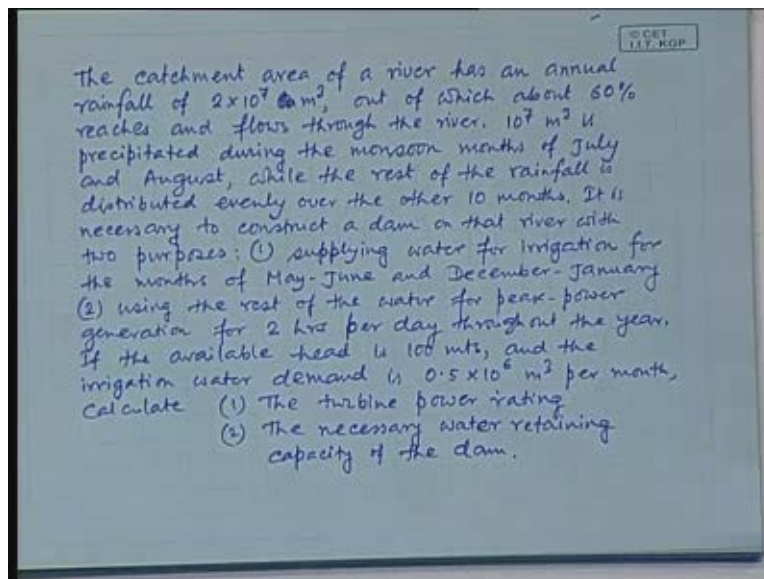 © CET
I.I.T. KGP
The catchment area of a river has an annual
rainfall of 2×10⁷ m³, out of which about 60%
reaches and flows through the river. 10⁷ m³ is
precipitated during the monsoon months of July
and August, while the rest of the rainfall is
distributed evenly over the other 10 months. It is
necessary to construct a dam on that river with
two purposes: (1) supplying water for irrigation for
the months of May-June and December-January
(2) using the rest of the water for peak-power
generation for 2 hrs per day throughout the year.
If the available head is 100 mts, and the
irrigation water demand is 0.5×10⁶ m³ per month,
Calculate (1) The turbine power rating
(2) The necessary water retaining
capacity of the dam.